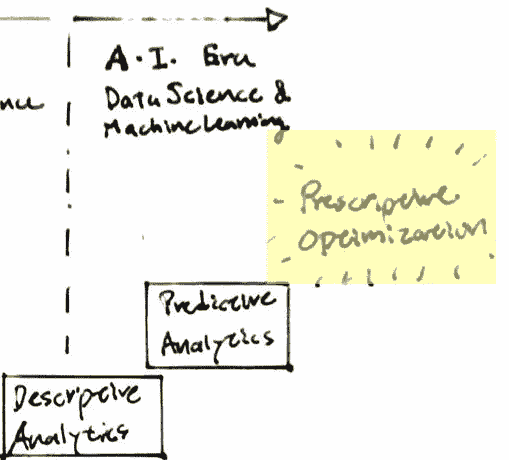 A.I. Era
nce
Data Science &
Machine Learning
Prescriptive
Optimization
Predictive
Analytics
Descriptive
Analytics